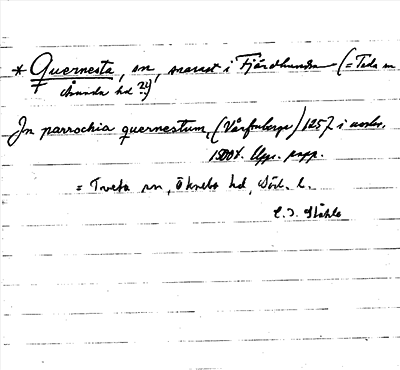 * Quernesta, sn, snarast i Fjärdhundra (= Teda sn
Åsunda hd ?)
In parrochia quernestum, (Vårfruberga) 1257 i avskr.
1500t. Upps. papp.
= Tveta sn, Öknebo hd, Södl. l.
C. I. Ståhle